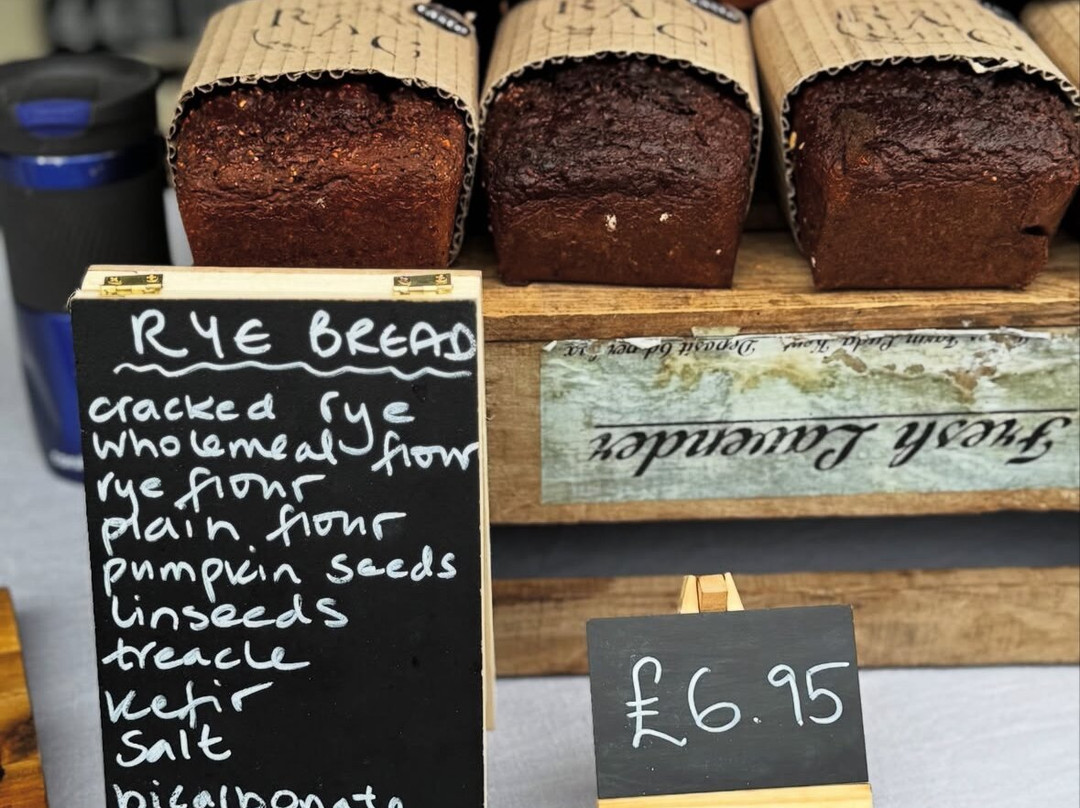 RYE BREAD
cracked rye
wholemeal flour
rye flour
plain flour
pumpkin seeds
linseeds
treacle
kefir
salt
bicarbonate
£6.95
Fresh Lavender
Deposit 6d per box